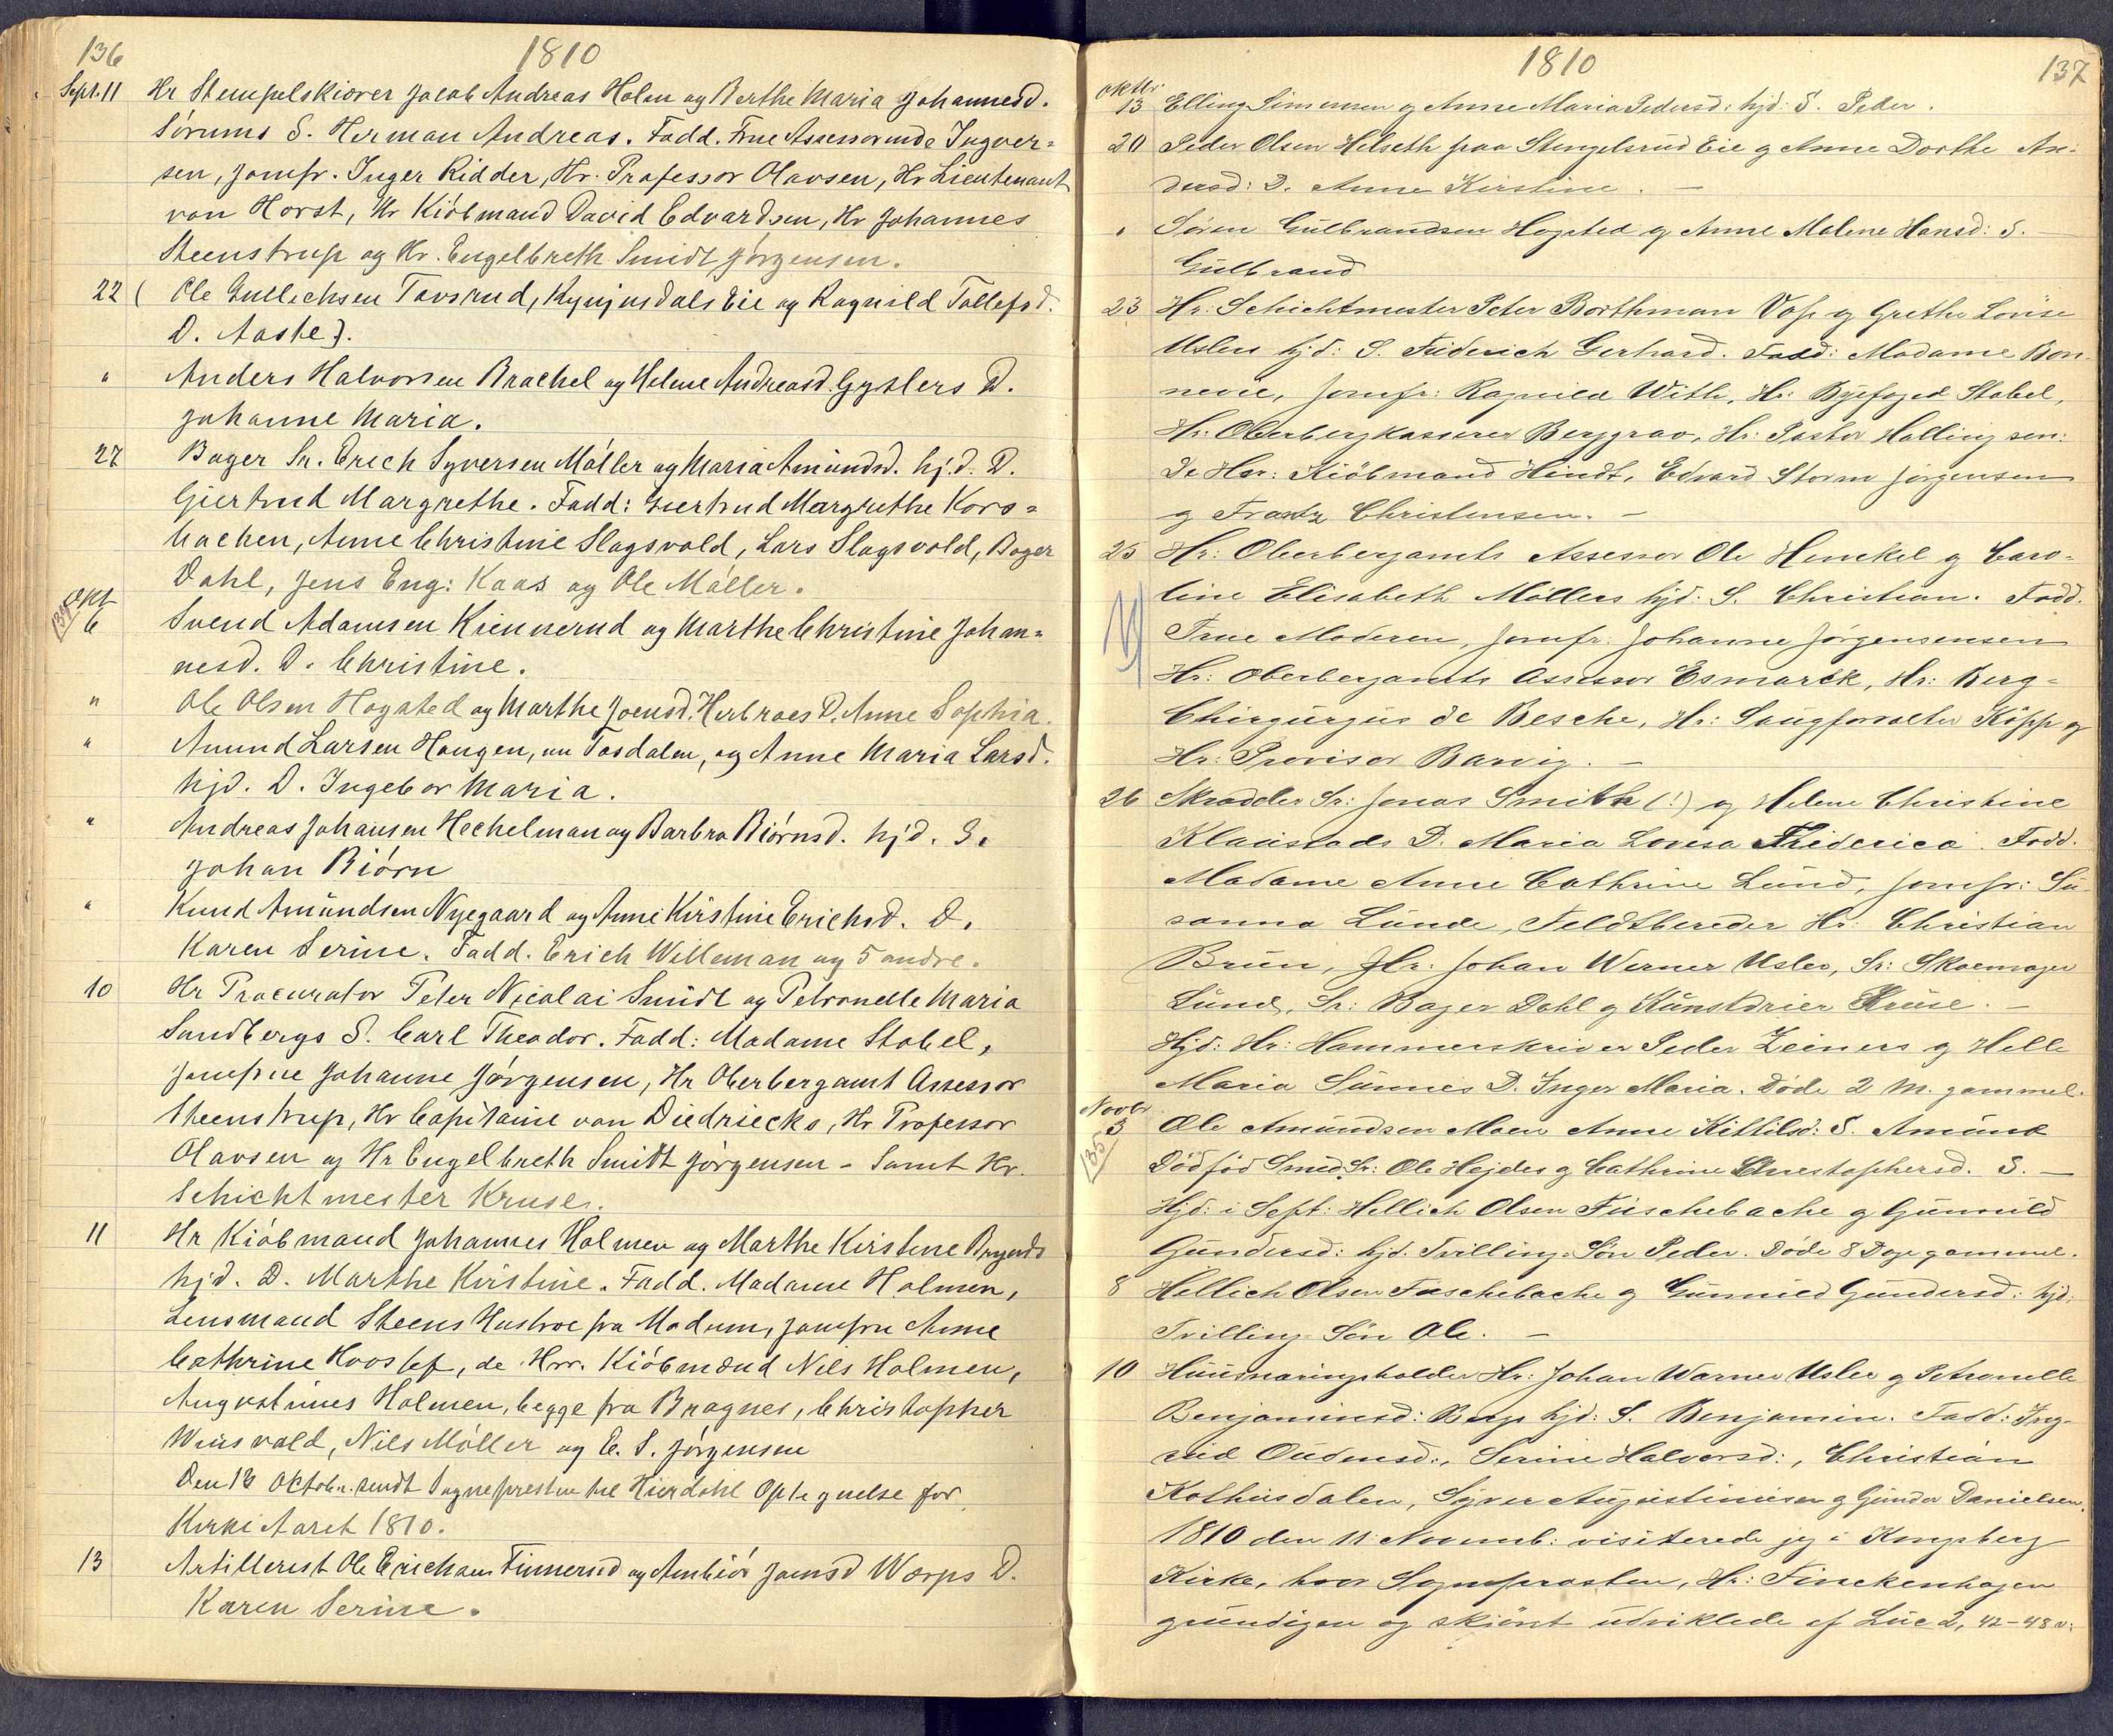 136
1810
Sept. 11 Hr Stempelskiærer Jacob Andreas Holm og Berthe Maria Johannesd.
Sørums S. Herman Andreas. Fadd. Frue Assessorinde Ingver=
sen, Jomfr. Inger Ridder, Hr. Professor Olavsen, Hr Lieutenant
von Horst, Hr Kiöbmand David Edvardsen, Hr Johannes
Steenstrup og Hr. Engelbreth Smidt Jörgensen.
22 ( Ole Gullichsen Tavsrud, Eie og Ragnild Tollefsd.
D. Aaste).
" Anders Halvorsen Brachel og Helene Andreasd. Gyslers D.
Johanne Maria.
27 Bager Sr. Erich Syversen Möller og Maria Amundsd. hj.d. D.
Giertrud Margrethe. Fadd: Giertrud Margrethe Kors=
bachen, Anne Christine Slagsvold, Lars Slagsvold, Bager
Dahl, Jens Eng: Kaas og Ole Möller.
Okt
134
6 Svend Adamsen Kiennerud og Marthe Christine Johan=
nesd. D. Christine.
" Ole Olsen Hogsted og Marthe Joensd. Herbraes D. Anne Sophia.
" Amund Larsen Haugen, nu Tosdalen, og Anne Maria Larsd.
hjd. D. Ingebor Maria.
" Andreas Johansen Hechelman og Barbra Biörnsd. hjd. S.
Johan Biörn
" Knud Amundsen Nyegaard og Anne Kirstine Erichsd. D.
Karen Serine. Fadd. Erich Welleman og 5 andre.
10 Hr Procurator Peter Nicolai Smidt og Petronelle Maria
Sandbergs S. Carl Theodor. Fadd: Madame Stabel,
Jomfrue Johanne Jörgensen, Hr Oberbergamt Assessor
Steenstrup, Hr Capitaine von Diedriecks, Hr Professor
Olavsen og Hr Engelbreth Smidt Jörgensen - Samt Hr.
Schichtmester Kruse.
11 Hr Kiöbmand Johannes Holmen og Marthe Kirstine
hjd. D. Marthe Kirstine. Fadd. Madame Holmen,
Lensmand Steens Hustroe fra Modum, Jomfru Anne
Cathrine de Hrr. Kiöbmænd Nils Holmen,
Augustinus Holmen, begge fra Bragnes, Christopher
Nils Möller og E. S. Jörgensen
Den 12 Octobr. sendt Sognepresten til Hierdahl Optegnelse for
Kirke Aaret 1810.
13 Artillerist Ole Erichsen Finnerud og Ambiör D.
Karen Serine.
1810
137
oktbr
13 Elling Simensen og Anne Maria Pedersd: hjd: S. Peder.
20 Peder Olsen Helseth fraa Stengelsrud Eie og Anne Dorthe An-
dersd: D. Anne Kirstine. —
" Sören Gulbrandsen Hogsted og Anne Malene Hansd: S. —
Gulbrand
23 Hr: Schichtmester Peter Börthman Vose og Grethe Lovise
Uslers hjd: S. Friderich Gerhard. Fadd: Madame Bon-
nevie, Jomfr: Ragnild With, Hr: Byefoged Stabel,
Hr: Oberbergkasserer Berggrav, Hr: Pastor Halling sen:
De Hrr: Kiöbmand Hindt, Edvard Storm Jørgensen
og Frantz Christensen. —
25 Hr: Oberbergamts Assessor Ole Henckel og Caro=
line Elisabeth Möllers hjd: S. Christian. Fadd.
Frue Moderen, Jomfr: Johanne Jørgensensen
Hr: Oberbergamts Assessor Esmarck, Hr: Berg-
Chirgurgus de Besche, Hr: Saugforvalter Köpp og
Hr: Provisor Barvig. —
26 Skrædder Sr: Jonas Smith (!) og Helene Christine
Klaustads D. Maria Lovisa Friderica. Fadd.
Madame Anne Cathrine Lund, Jomfr: Su-
sanna Lunde, Feldtbereder Hr: Christian
Brun, Hr: Johan Werner Usler, Sr: Skoemager
Lund, Sr: Bager Dahl og Kunstdrier Kruse. —
Hjd: Hr: Hammerskriver Peder Zeiners og Helle
Maria Sunnes D. Inger Maria. Döde 2 M. gammel.
Novbr.
135
3 Ole Amundsen Moen Anne Kittilsd: S. Amund
Dödfød Smed Sr: Ole Hejdes og Cathrine Christophersd. S. —
Hjd: i Sept: Hellich Olsen Fuschebache og Gunnild
Gundersd: hjd. Tvilling-Sön Peder. Döde 8 Dage gammel.
8 Hellich Olsen Fuschebache og Gunnild Gundersd: hjd:
Tvilling-Sön Ole. —
10 Huusnæringsholder Hr: Johan Warner Usler og Petronelle
Benjaminsd: Bergs hjd: S. Benjamin. Fadd: Ing-
rid Oudensd:, Serine Halvorsd:, Christian
Kolhusdalen, Syver Augustinusen og Gunder Danielsen.
1810 den 11 Novemb: visiterede jeg i Kongsberg
Kirke, hvor Sognepresten, Hr: Finckenhagen
grundigen og skiönt udviklede af Luc 2, 42-48 v: